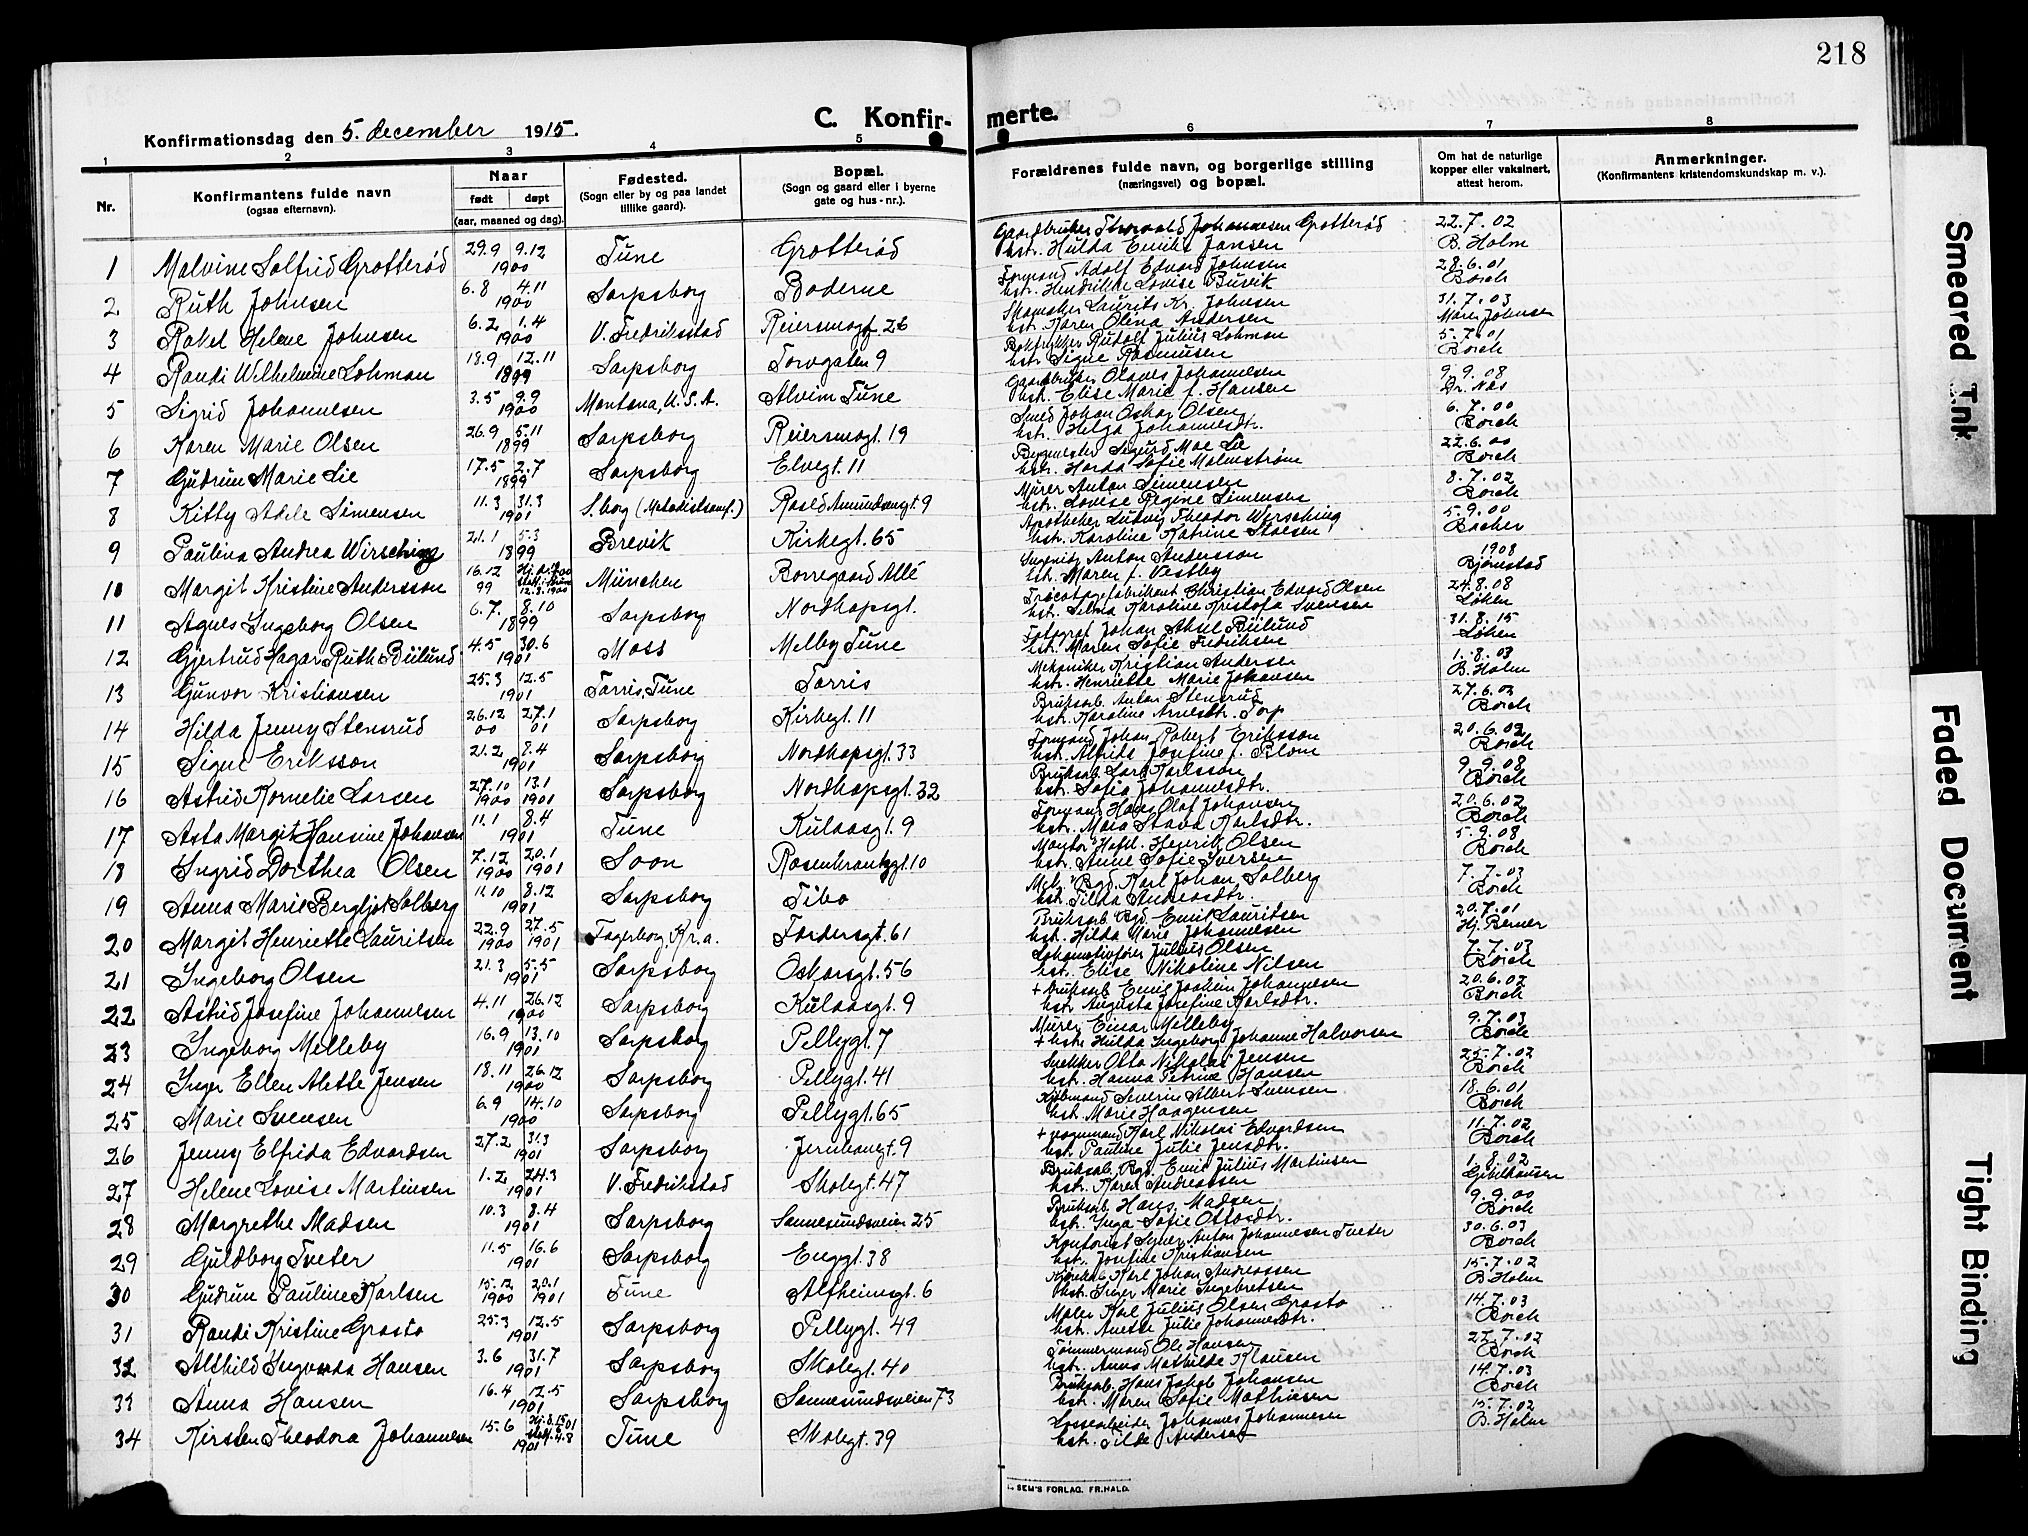 218
C. Konfir-
merte.
Konfirmationsdag den 5. december 1915.
1 2 3 4 5 6 7 8
Nr.
Konfirmantens fulde navn
(ogsaa efternavn).
Naar
født døpt
(aar, maaned og dag).
Fødested.
(Sogn eller by og paa landet
tillike gaard).
Bopæl.
(Sogn og gaard eller i byerne
gate og hus-nr.).
Forældrenes fulde navn, og borgerlige stilling
(næringsvei) og bopæl.
Om hat de naturlige
kopper eller vaksinert,
attest herom.
Anmerkninger.
(Konfirmantens kristendomskundskap m. v.).
1 Malvine Solfrid Grotterød 29.9 9.12 1900 Tune Grotterød Gaardbruker Thorvald Johannesen Grotterød 22.7.02
hstr. Hulda Emilie Jansen B. Holm
2 Ruth Johnsen 6.8 4.11 1900 Sarpsborg Boderne Formand Adolf Edvard Johnsen 28.6.01
hstr. Hendrikke Lovise Busvik Borch
3 Rakel Helene Johnsen 6.2 1.4 1900 V. Fredriksstad Reiersmogt. 26 Skomaker Laurits Kr. Johnsen 31.7.03
hstr. Karen Olena Andersen Maren Johnsen
4 Randi Wilhelmine Lohman 18.9 12.11 1899 Sarpsborg Torvgaten 9 Boktrykker Rudolf Julius Lohman 5.7.01
hstr. Signe Rasmusen Borch
5 Sigrid Johannesen 3.5 9.9 1900 Montana, U.S.A. Alvim Tune Gaardbruker Olaves Johannesen 9.9.08
hstr. Elise Marie f. Hansen Dr. Næs
6 Karen Marie Olsen 26.9 5.11 1899 Sarpsborg Reiersmogt. 19 Smed Johan Oskar Olsen 6.7.00
hstr. Helga Johannesdtr. Borch
7 Gudrun Marie Lie 17.5 2.7 1899 Sarpsborg Elvegt. 11 Bygmester Sigurd Moe Lie 22.6.00
hstr. Harda Sofie Malmstrøm Borch
8 Kitty Adele Simensen 11.3 31.3 1901 S.borg (Metodistsamf.) Roald Amundsensgt 9 Murer Anton Simensen 8.7.02
hstr. Lovise Regine Simensen Borch
9 Paulina Andrea Wirsching 21.1 5.3 1899 Brevik Kirkegt. 65 Apotheker Ludvig Theodor Wirsching 5.9.00
hstr. Karoline Katrine Stoesen Backer
10 Margit Kristine Andersson 16.12 99 12.8.1900 München Borregaard Allé Ingeniør Anton Andersson 1908
hstr. Maren f. Vestby Bjørnstad
11 Agnes Ingeborg Olsen 6.7. 8.10 1899 Sarpsborg Nordkapsgt. Tricotagefabrikant Christian Edvard Olsen 24.8.08
hstr. Selma Karoline Kristofa Svensen Løken
12 Gjertrud Hagar Ruth Biilund 4.5 30.6 1901 Moss Melby Tune Fotograf Johan Aksel Biilund 31.8.15
hstr. Maren Sofie Fredriksen Løken
13 Gunvor Kristiansen 25.3 12.5 1901 Tarris, Tune Tarris Mekaniker Kristian Andersen 1.8.03
hstr. Henriette Marie Johansen B. Holm
14 Hilda Jenny Stensrud 26.12 00 27.1 01 Sarpsborg Kirkegt. 11 Bruksarb. Anton Stensrud 27.6.02
hstr. Karoline Arnesdtr. Torp Borch
15 Signe Eriksson 21.2 8.4 1901 Sarpsborg Nordkapsgt. 33 Formand Johan Robert Eriksson 20.6.02
hstr. Alfrida Josefine f. Blom Borch
16 Astrid Kornelie Larsen 27.10 1900 13.1 1901 Sarpsborg Nordkapsgt. 32 Bruksarb. Lars Karlsson 9.9.08
hstr. Sofia Johannesdtr. Borch
17 Asta Margit Hansine Johansen 11.1 8.4 1901 Tune Kulaasgt. 9 Formand Hans Olaf Johansen 20.6.02
hstr. Maia Stava Karlsdtr. Borch
18 Ingrid Dorthea Olsen 7.12 1900 20.1 1901 Soon Rosenkrantzgt. 10 Montør Hafsl. Henrik Olsen 5.9.08
hstr. Anne Sofie Iversen Borch
19 Anna Marie Bergljot Solberg 11.10 8.12 1901 Sarpsborg Tibo Mek. Bgd. Karl Johan Solberg 7.7.03
hstr. Tilda Andreasdtr. Borch
20 Margit Henriette Lauritsen 22.9 1900 27.5 1901 Fagerborg, Kr.a. Fordersgt. 61 Bruksarb. Bgd. Emil Lauritsen 20.7.01
hstr. Hilda Marie Johannesen Hj. Berner
21 Ingeborg Olsen 21.3 5.5 1901 Sarpsborg Oskarsgt. 56 Lokomotivfører Julius Olsen 7.7.03
hstr. Elise Nikoline Nilsen Borch
22 Astrid Josefine Johannesen 4.11 26.12 1900 Sarpsborg Kulaasgt. 9 + Bruksarb. Emil Joakim Johannesen 20.6.02
hstr. Augusta Josefine Karlsdtr. Borch
23 Ingeborg Melleby 16.9 13.10 1901 Sarpsborg Pellygt. 7 Murer Einar Melleby 9.7.03
+ hstr. Hulda Ingeborg Johanne Halvorsen Borch
24 Inger Ellen Alette Jensen 18.11 26.12 1900 Sarpsborg Pellygt. 41 Snekker Otto Nikolai Jensen 25.7.02
hstr. Hanna Petrine Hansen Borch
25 Marie Svensen 6.9 14.10 1900 Sarpsborg Pellygt. 65 Kjøbmand Severin Albert Svensen 18.6.01
hstr. Marie Haagensen Borch
26 Jenny Elfrida Edvardsen 27.2 31.3 1901 Sarpsborg Jernbanegt. 9 + Vognmand Karl Nikolai Edvardsen 11.7.02
hstr. Pauline Julie Jensdtr. Borch
27 Helene Lovise Martinsen 1.2 24.3 1901 V. Fredrikstad Skolegt. 47 Bruksarb. Bgd. Emil Julius Martinsen 1.8.02
hstr. Karen Andreassen Gibelhausen
28 Margrethe Madsen 10.3 8.4 1901 Sarpsborg Sannesundsveien 25 Bruksarb. Hans Madsen 9.9.00
hstr. Inga Sofie Ottosdtr. Borch
29 Guldborg Tveter 11.5 16.6 1901 Sarpsborg Enggt. 38 Kontorist Syver Anton Johannesen Tveter 30.6.03
hstr. Josefine Kristiansen Borch
30 Gudrun Pauline Karlsen 15.12 1900 20.1 1901 Tune Alfheimsgt. 6 Karl Johan Andreassen 15.7.02
hstr. Inger Marie Ingebretsen B. Holm
31 Randi Kristine Grasto 25.3 12.5 1901 Sarpsborg Pellygt. 49 Maler Karl Julius Olsen Grasto 14.7.03
hstr. Anette Julie Johannesdtr. Borch
32 Alshild Ingvarda Hansen 3.6 31.7 1901 Sarpsborg Skolegt. 40 Tømmermand Ole Hansen 22.7.02
hstr. Anna Mathilde Klausen Borch
33 Anna Hansen 16.4 12.5 1901 Sarpsborg Sannesundsveien 73 Bruksarb. Hans Jakob Johansen 14.7.03
hstr. Maren Sofie Mathisen Borch
34 Kirsten Theodora Johannesen 15.6 1901 Tune Skolegt. 39 Lossearbeider Johannes Johannesen 15.7.02
hstr. Tilde Andersen B. Holm
SEM'S FORLAG. FR.HALD.
Smeared Ink
Faded Document
Tight Binding